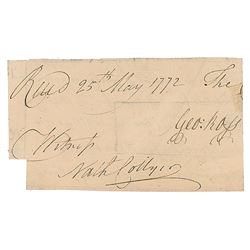 Recd 25th May 1772 The
Geo: Ross
Witness
Nath Collyer